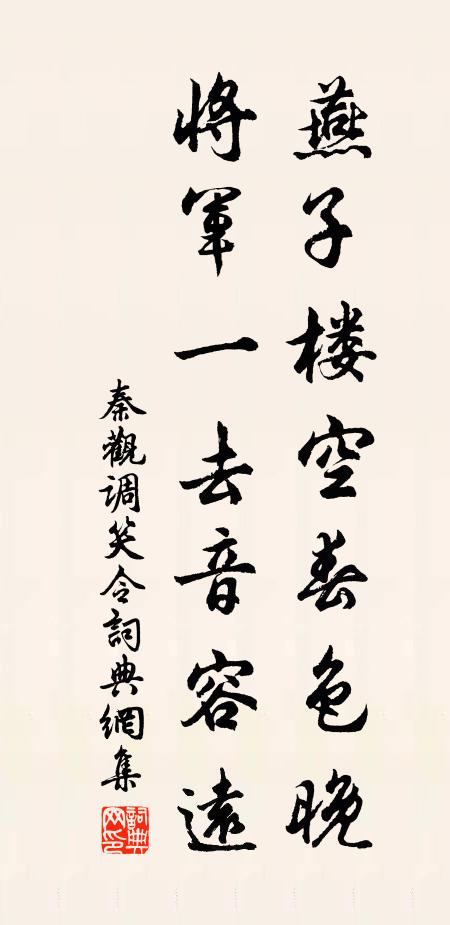 燕子楼空春色晚
將軍一去音容遠
秦觀调笑令詞典網集
詞典網印